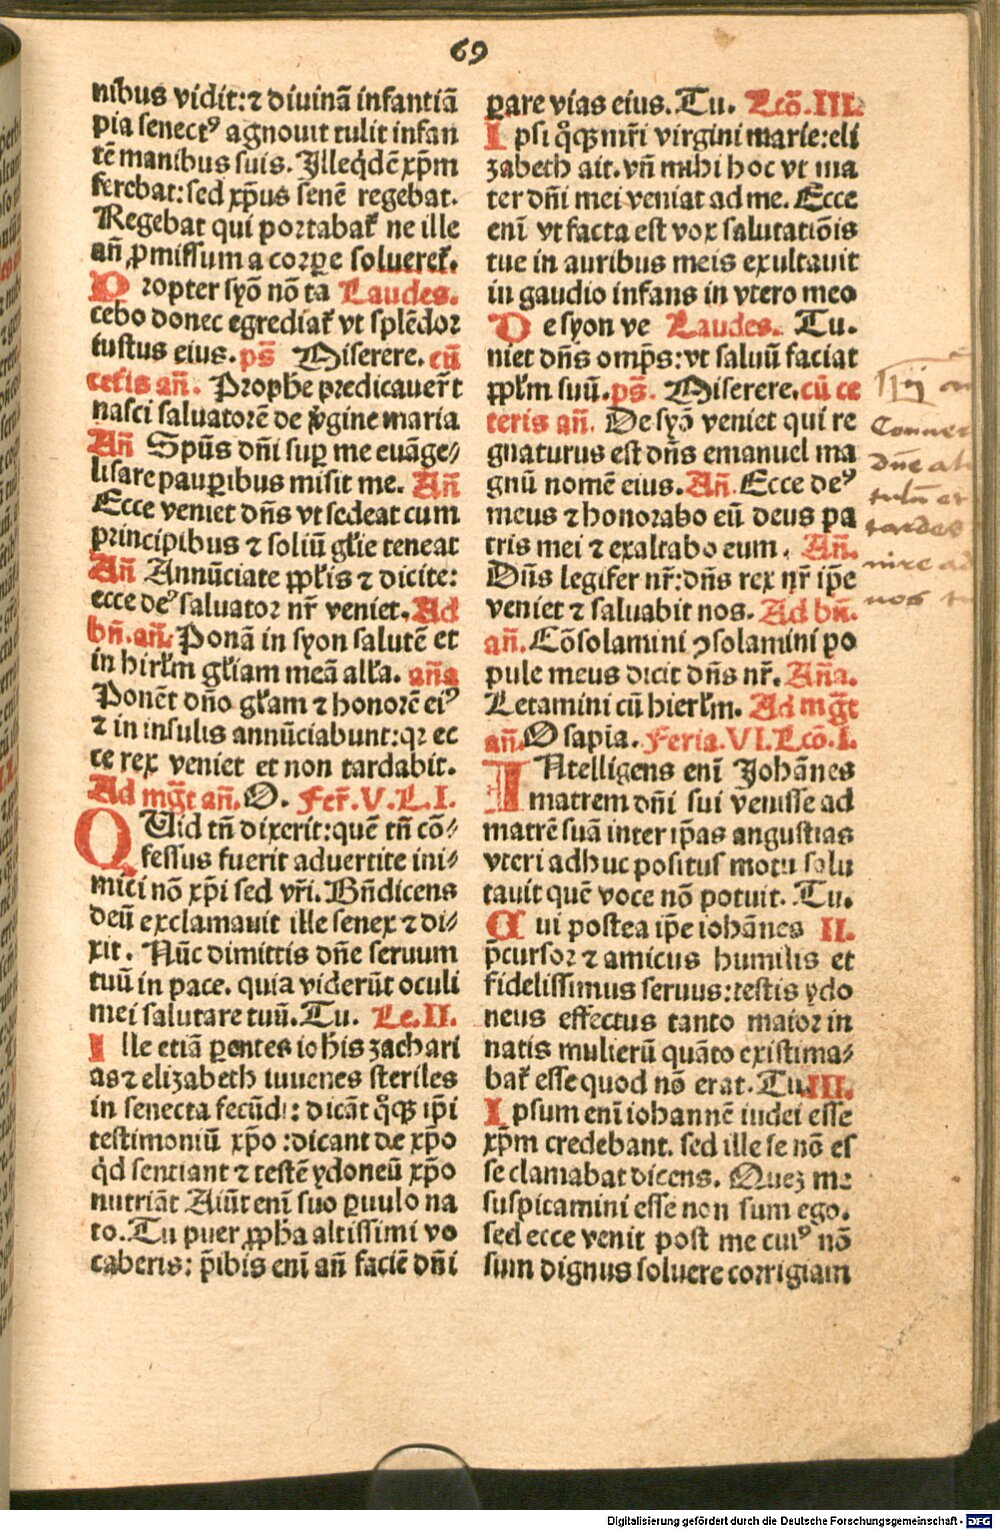 69
nibus vidit: ⁊ diuinā infantiā
pia senectꝰ agnouit tulit infan
tē manibus suis. Jlleq̇dē xp̄m
ferebat: sed xp̄us senē regebat.
Regebat qui portabat̄ ne ille
an̄ ꝓmissum a corꝑe solueret̄.
Propter syō nō ta Laudes.
cebo donec egrediat̄ vt splēdor
iustus eius. ps̄ Miserere. cū
ceteis an̄. Prophe predicauer̄t
nasci saluatorē de v̄gine maria
An̄ Spūs dn̄i suꝑ me euāge⸗
lisare pauꝑibus misit me. An̄
Ecce veniet dn̄s vt sedeat cum
principibus ⁊ soliū gl̄ie teneat
An̄ Annūciate ppl̄is ⁊ dicite:
ecce deꝰ saluator nr̄ veniet. Ad
bn̄. an̄. Ponā in syon salutē et
in hirl̄m gl̄iam meā all̄a. an̄a
Ponēt dn̄o gl̄am ⁊ honorē eiꝰ
⁊ in insulis annūciabunt: qꝛ ec
ce rex veniet et non tardabit.
Ad mḡt an̄. O. Fer̄. V. L. I.
QUid tn̄ dixerit: quē tn̄ cō⸗
fessus fuerit aduertite ini⸗
mici nō xp̄i sed vr̄i. Bn̄dicens
deū exclamauit ille senex ⁊ di⸗
xit. Nūc dimittis dn̄e seruum
tuū in pace. quia viderūt oculi
mei salutare tuū. Tu. Le. II.
Ille etiā ꝑentes iohis zachari
as ⁊ elizabeth iuuenes steriles
in senecta fecūdi: dicāt q̊qꝫ ip̄i
testimoniū xp̄o: dicant de xp̄o
q̇d sentiant ⁊ testē ydoneū xp̄o
nutriāt Aiūt enī suo ꝑuulo na
to. Tu puer ꝓpha altissimi vo
caberis: p̄ibis enī an̄ faciē dn̄i
ꝑare vias eius. Tu. Lcō. III.
Ipsi q̊qꝫ mr̄i virgini marie: eli
zabeth ait. vn̄ mihi hoc vt ma
ter dn̄i mei veniat ad me. Ecce
enī vt facta est vox salutatiōis
tue in auribus meis exultauit
in gaudio infans in vtero meo
De syon ve Laudes. Tu.
niet dn̄s omp̄s: vt saluū faciat
ppl̄m suū. ps̄. Miserere. cū ce
teris an̄. De syō veniet qui re
gnaturus est dn̄s emanuel ma
gnū nomē eius. An̄. Ecce deꝰ
meus ⁊ honorabo eū deus pa
tris mei ⁊ exaltabo eum. An̄.
Dn̄s legifer nr̄: dn̄s rex nr̄ ip̄e
veniet ⁊ saluabit nos. Ad bn̄.
an̄. Cōsolamini ꝯsolamini po
pule meus dicit dn̄s nr̄. An̄a.
Letamini cū hierl̄m. Ad mḡt
an̄. O sapia. Feria. VI. Lcō. I.
INtelligens enī Johānes
matrem dn̄i sui vēnisse ad
matrē suā inter ip̄as angustias
vteri adhuc positus motu salu
tauit quē voce nō potuit. Tu.
Qui postea ip̄e iohānes II.
p̄cursor ⁊ amicus humilis et
fidelissimus seruus: testis ydo
neus effectus tanto maior in
natis mulierū quāto existima⸗
bat̄ esse quod nō erat. Tu. III.
Ipsum enī iohannē iudei esse
xp̄m credebant. sed ille se nō es
se clamabat dicens. Quez me
suspicamini esse non sum ego.
sed ecce venit post me cuiꝰ nō
sum dignus soluere corrigiam
Conuer
dn̄e al
tardes
nire ad
nos
Digitalisierung gefördert durch die Deutsche Forschungsgemeinschaft - DFG